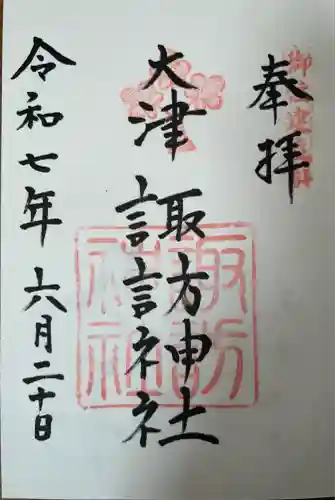 奉拝
大津
諏訪神社
令和七年 六月二十日
諏訪
神社